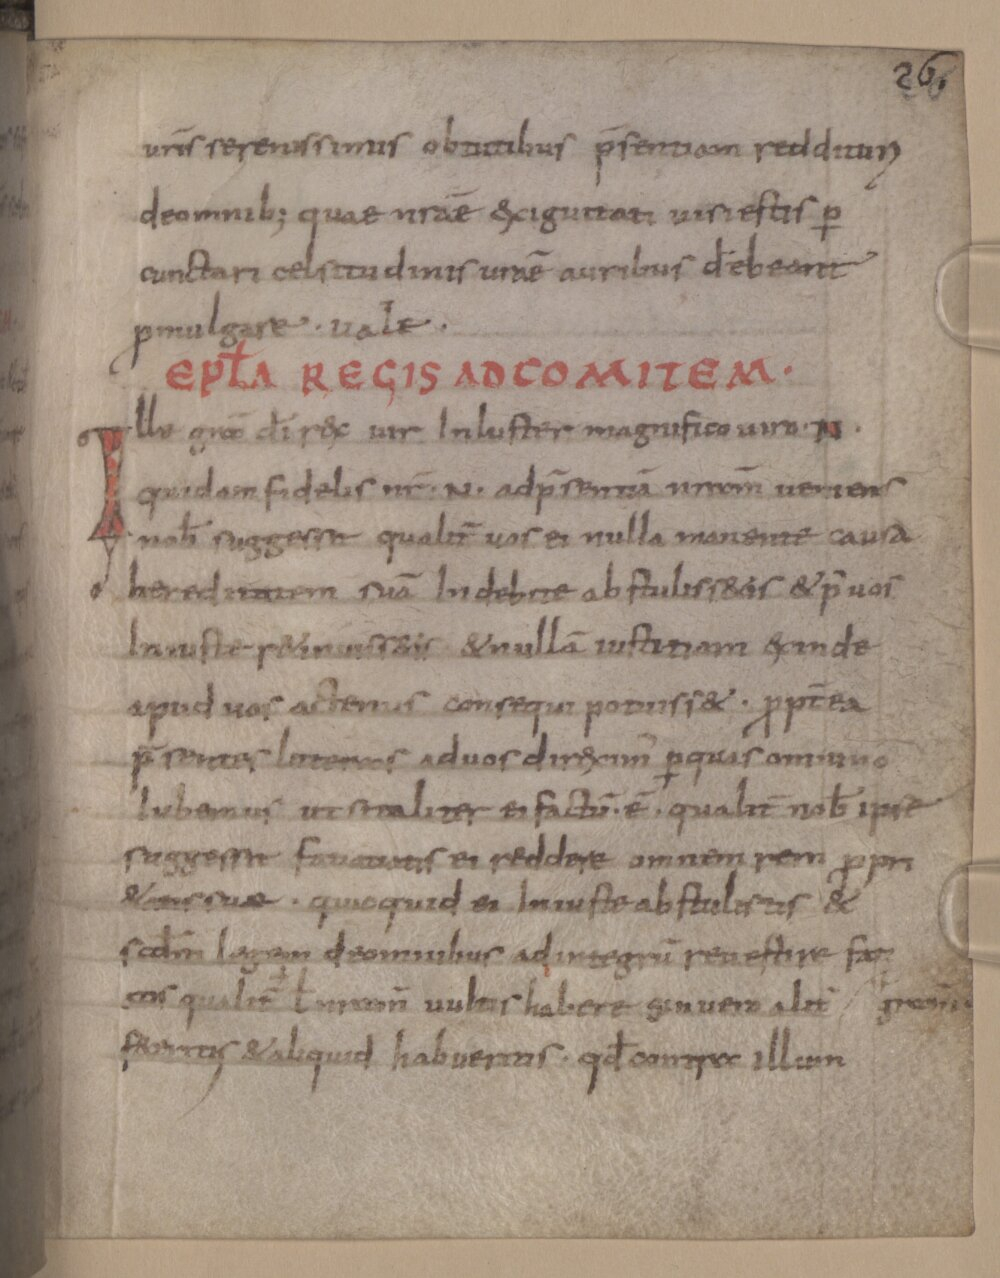 26.
uris serenissimis obtutibus p̄sentiam redditurꝰ
deomnib; quae nr̄ae exiguitati uisi estis ꝑ
cunctari celsitudinis urae auribus debeant
ꝓmulgare · uale ·
EPƚA REGIS AD COMITEM ·
Ille gra d̄i rex uir Inluster magnifico uiro · N ·
quidam fidelis nr̄ · N · adp̄sentiā nr̄am ueniens
nob̄ suggessit qualit̄ uos ei nulla manente causa
hereditatem suā Indebite abstuliss&is & p̄ uos
Iniuste r&inuiss&is & nullā iustitiam exinde
apud uos actenus consequi potuiss& · ꝓpt̄ea
p̄sentes litteras ad uos direximꝰ ꝑquas omnino
Iubemus ut si taliter ei factū · ē · qualit̄ nob̄ ipse
suggessit faciatis ei reddere omnem rem ꝓpri
&atis suae · quicquid ei Iniuste abstulistis &
scdm̄ legem deomnibus adintegrū reuestire fa
cias qualit̄ ƚ nr̄am uultis habere sin uero alit̄ gr̄am
feceritis & aliquid habueritis · qd̄ contra illum